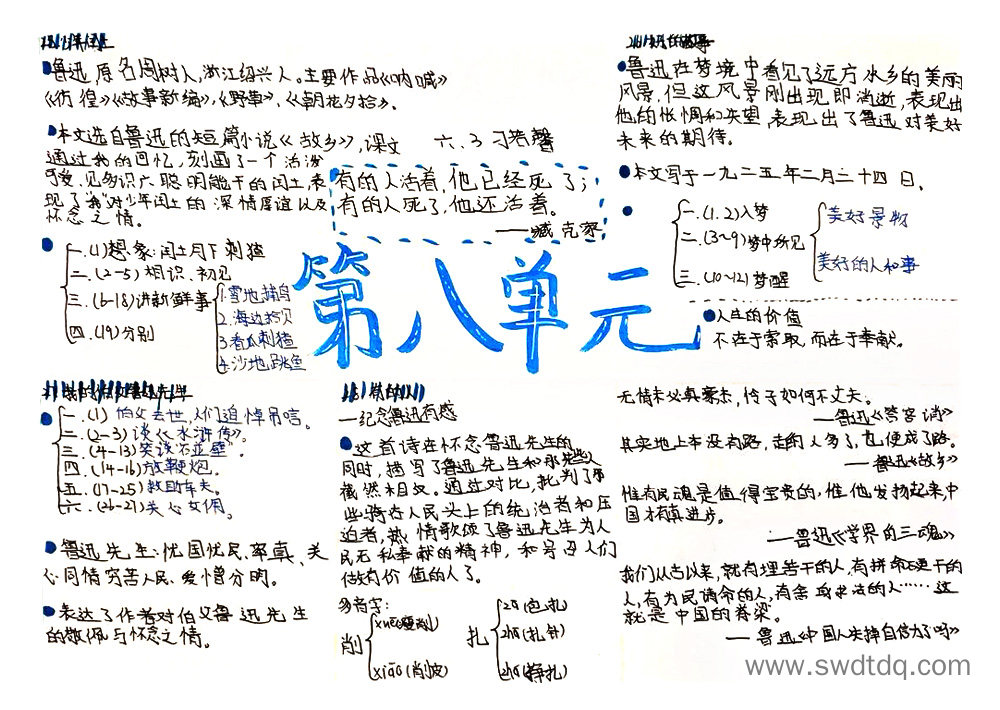 25 少年闰土
鲁迅 原名周树人,浙江绍兴人。主要作品《呐喊》
《彷徨》《故事新编》,《野草》,《朝花夕拾》。
本文选自鲁迅的短篇小说《故乡》,课文
通过我的回忆,刻画了一个活泼
可爱、见多识广、聪明能干的闰土,表
现了"我"对少年闰土的深情厚谊以及
怀念之情。
一.(1)想象:闰土月下刺猹
二.(2~5)相识、初见
三.(6-18)讲新鲜事
1.雪地捕鸟
2.海边拾贝
3.看瓜刺猹
4.沙地跳鱼
四.(19)分别
六、3 刁若馨
有的人活着,他已经死了;
有的人死了,他还活着。
——臧克家
第八单元
鲁迅在梦境中看见了远方水乡的美丽
风景,但这风景刚出现即消逝,表现出
他的怅惆和失望,表现出了鲁迅对美好
未来的期待。
本文写于一九二五年二月二十四日。
一.(1.2)入梦
二.(3~9)梦中所见
三.(10~12)梦醒
美好景物
美好的人和事
人生的价值
不在于索取,而在于奉献。
27 我的伯父鲁迅先生
一.(1)伯父去世,人们追悼吊唁。
二.(2-3)谈《水浒传》。
三.(4-13)笑谈"碰壁"。
四.(14-16)放鞭炮。
五.(17-25)救助车夫。
六.(26-27)关心女佣。
鲁迅先生:忧国忧民、率真、关
心同情穷苦人民、爱憎分明。
表达了作者对伯父鲁迅先生
的敬佩与怀念之情。
有的人
—纪念鲁迅有感
这首诗在怀念鲁迅先生的
同时,描写了鲁迅先生和那些人
截然相反。通过对比,批判了那
些骑在人民头上的统治者和压
迫者,热情歌颂了鲁迅先生为人
民无私奉献的精神,和号召人们
做有价值的人了。
多音字:
削
xuē(瘦削)
xiāo(削皮)
扎
zā(包扎)
zhā(扎针)
zhá(挣扎)
无情未必真豪杰,怜子如何不丈夫。
——鲁迅《答客诮》
其实地上本没有路,走的人多了,也便成了路。
——鲁迅《故乡》
惟有民魂是值得宝贵的,惟他发扬起来,中
国才有真进步。
——鲁迅《学界的三魂》
我们从古以来,就有埋苦干的人,有拼命硬干的
人,有为民请命的人,有舍身求法的人……这
就是中国的脊梁。
——鲁迅《中国人失掉自信力了吗》
www.swdtdq.com